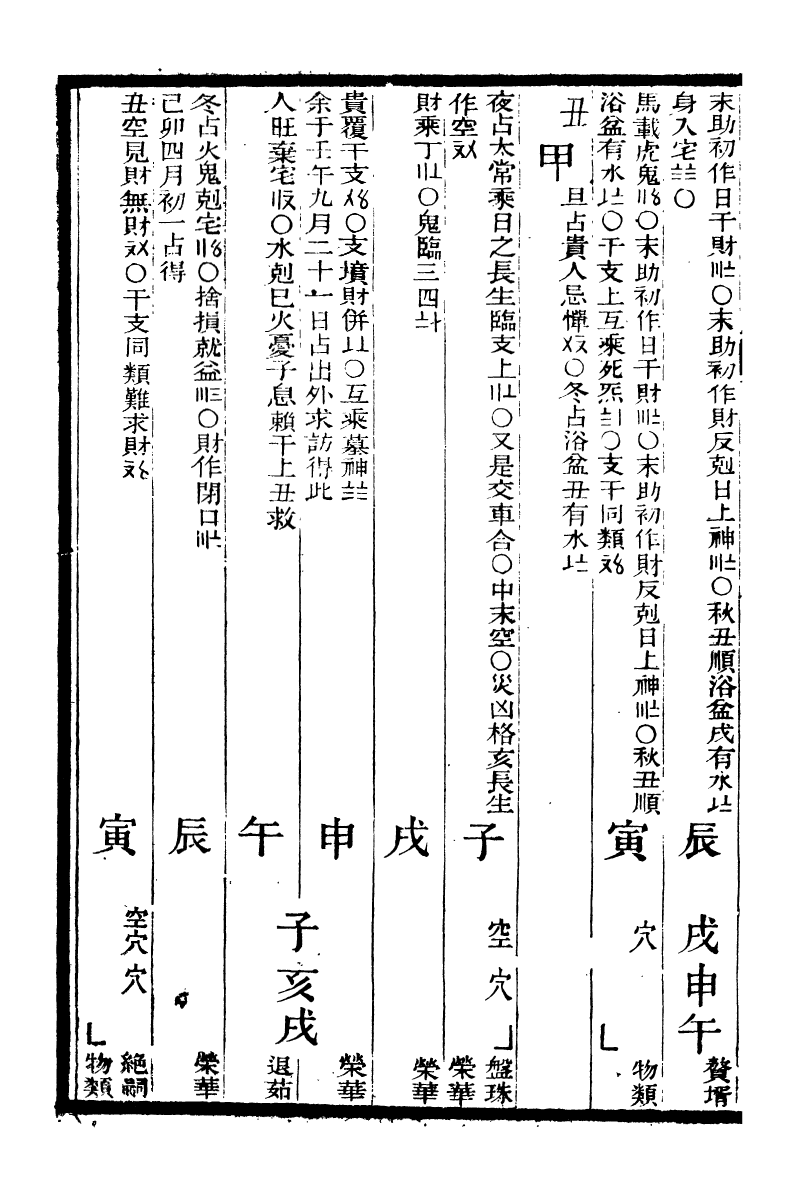 末助初作日干財〇末助初作財反剋日上神〇秋丑順浴盆戌有水
身入宅〇
辰
戌申午
贅壻
馬載虎鬼〇末助初作日干財〇末助初作財反剋日上神〇秋丑順
浴盆有水〇干支上互乘死炁〇支干同類
寅
穴
物類
丑
甲
旦占貴人忌憚〇冬占浴盆丑有水
夜占太常乘日之長生臨支上〇又是交車合〇中末空〇災凶格亥長生
作空
子
空穴
盤珠
榮華
財乘丁〇鬼臨三四
戌
榮華
貴覆干支〇支墳財併〇互乘墓神
余于壬午九月二十一日占出外求訪得此
申
榮華
人旺棄宅〇水剋巳火憂子息賴干上丑救
午
子亥戌
退茹
冬占火鬼剋宅〇捨損就益〇財作閉口
己卯四月初一占得
辰
榮華
丑空見財無財〇干支同類難求財
寅
空穴穴
絕嗣
物類